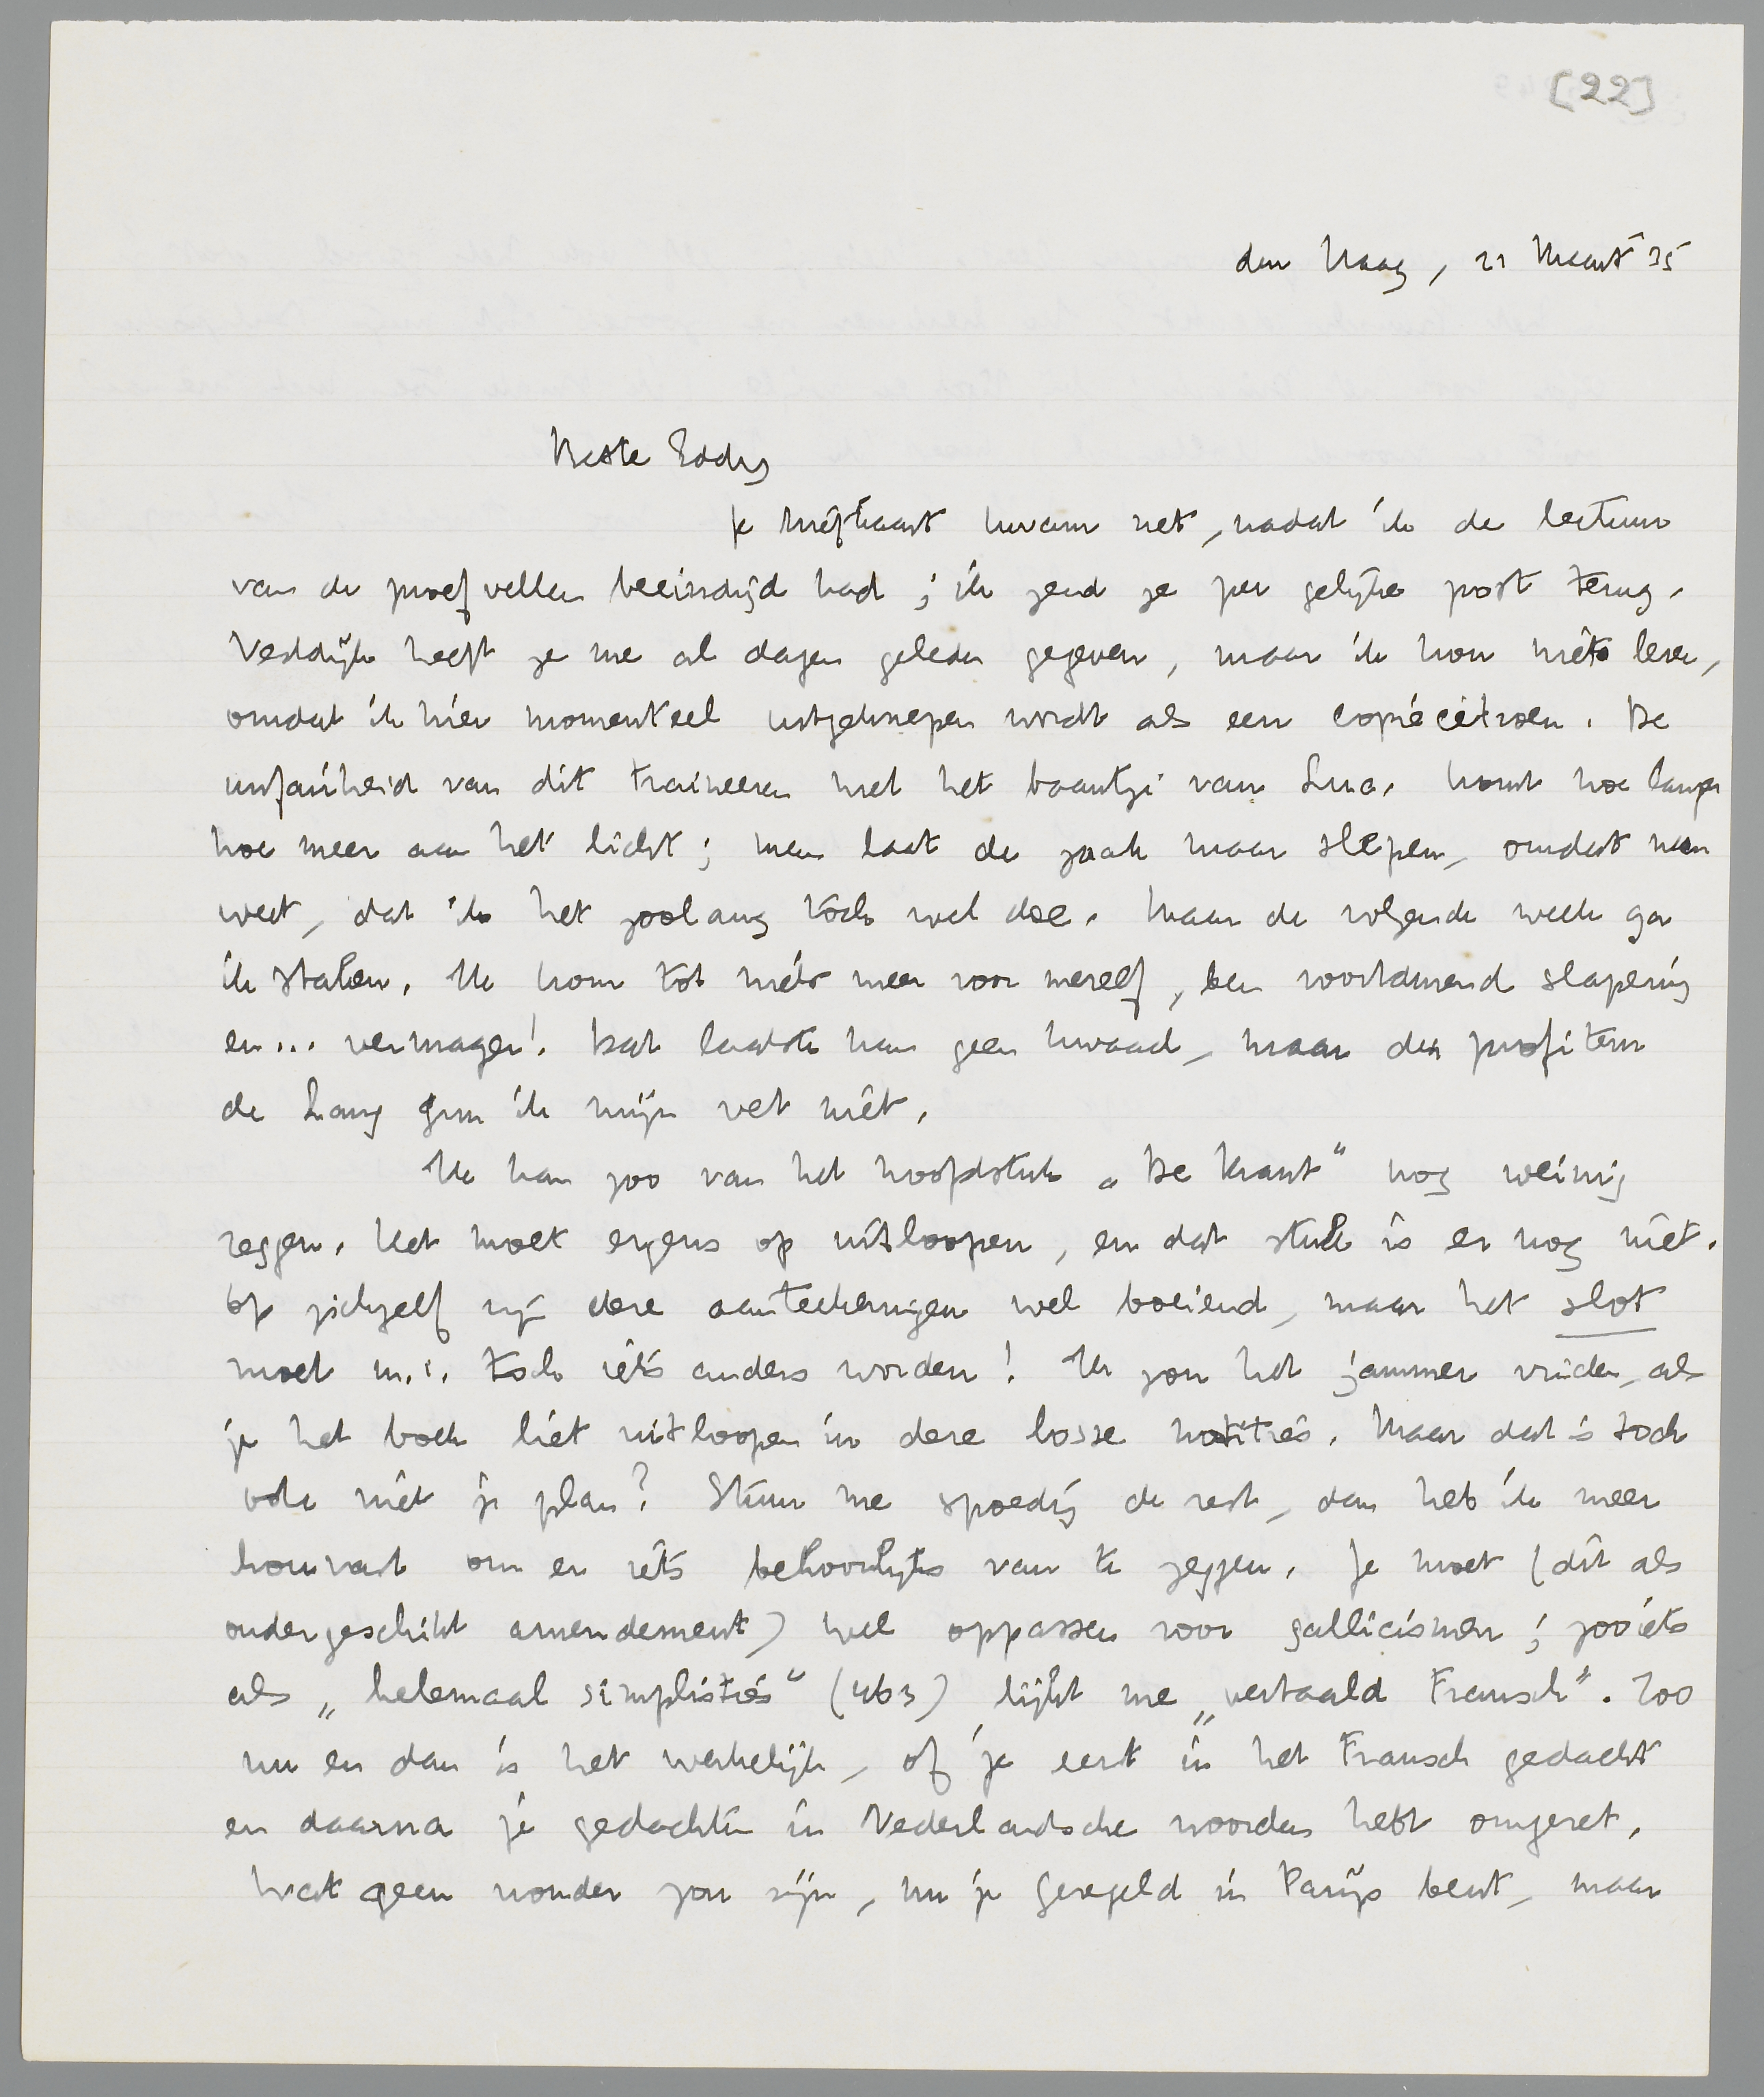 [22]
den Haag, 21 Maart '35
Beste Eddy
Je briefkaart kwam net, nadat ik de lectuur
van de proefvellen beëindigd had; ik zend ze per gelijke post terug.
Vestdijk heeft ze me al dagen geleden gegeven, maar ik kon niets lezen,
omdat ik hier momenteel uitgeknepen wordt als een copiécitroen. De
unfairheid van dit traineeren met het baantje van Luc. komt hoe langer
hoe meer aan het licht; men laat de zaak maar slepen, omdat men
weet, dat ik het zoolang toch wel doe. Maar de volgende week ga
ik staken. Ik kom tot niets meer voor mezelf, ben voortdurend slaperig
en... vermager! Dat laatste kan geen kwaad, maar den profiteur
de Lang gun ik mijn vet niet.
Ik kan zoo van het hoofdstuk „De Krant" nog weinig
zeggen. Het moet ergens op uitloopen, en dat stuk is er nog niet.
Op zichzelf zijn deze aanteekeningen wel boeiend, maar het slot
moet m.i. toch iets anders worden! Ik zou het jammer vinden, als
je het boek liet uitloopen in deze losse notities. Maar dat is toch
ook niet je plan? Stuur me spoedig de rest, dan heb ik meer
houvast om er iets behoorlijks van te zeggen. Je moet (dit als
ondergeschikt amendement) wel oppassen voor gallicismen; zooiets
als „helemaal simplisties" (463) lijkt me „vertaald Fransch". Zoo
nu en dan is het werkelijk, of je eerst in het Fransch gedacht
en daarna je gedachten in Nederlandsche woorden hebt omgezet,
wat geen wonder zou zijn, nu je geregeld in Parijs bent, maar